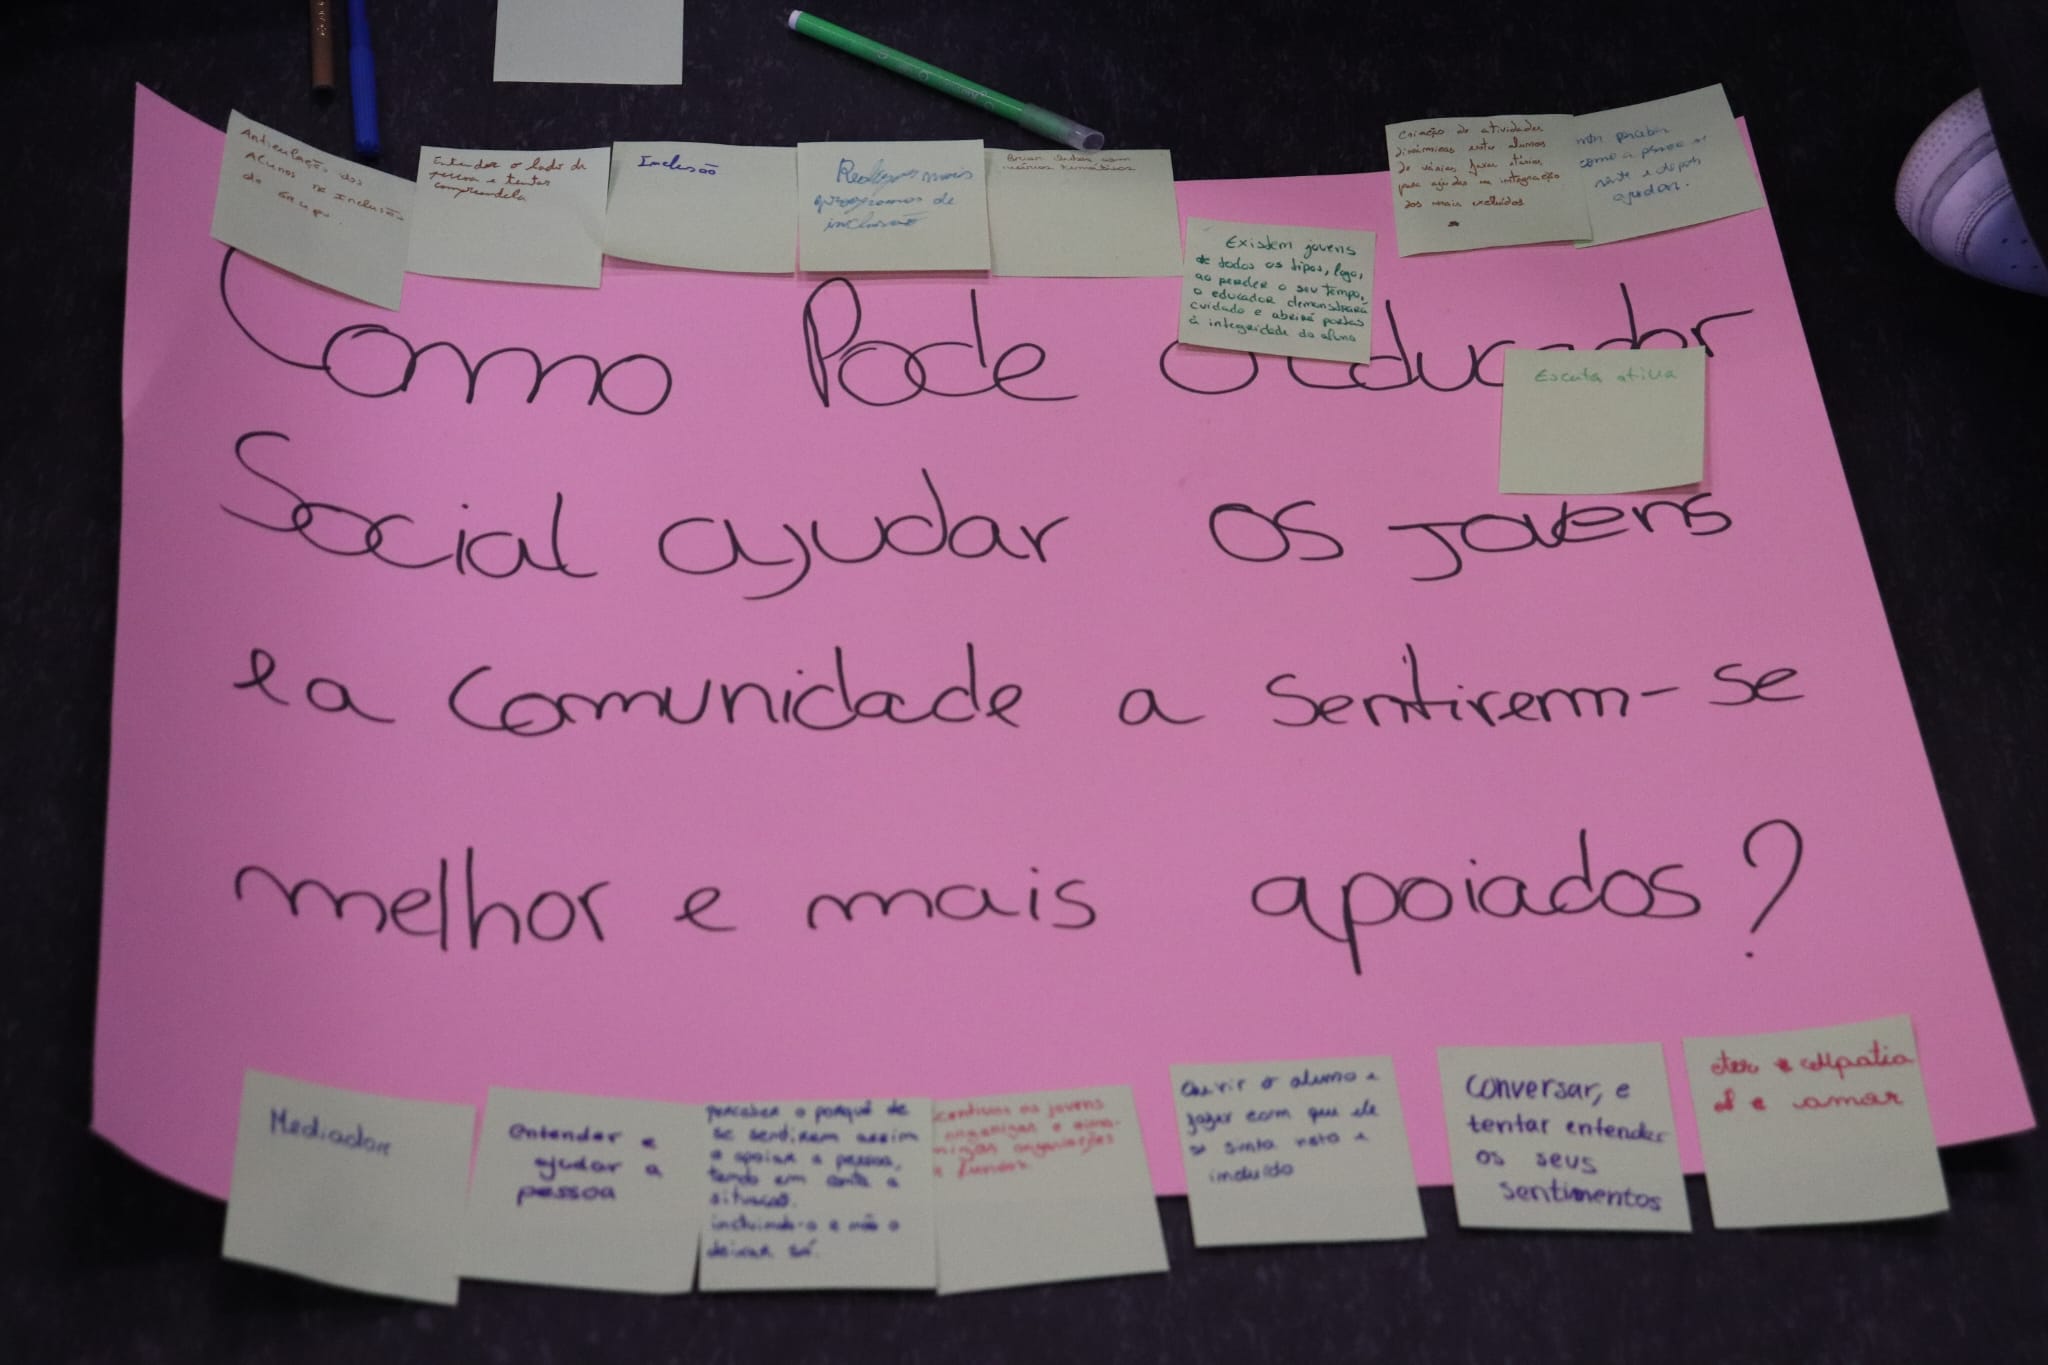 Articulação dos
Alunos na Inclusão
do Grupo.
Entender o lado da
pessoa e tentar
compreendela
Inclusão
Realizar mais
programas de
inclusão
Criação de atividades
dinâmicas entre alunos
de várias faixas etárias
para ajudar na integração
dos mais excluídos
perceber
como a pessoa se
sente e depois
ajudar.
Existem jovens
de todos os tipos, logo,
ao perder o seu tempo,
o educador demonstrará
cuidado e abrirá portas
à integridade do aluno
Escuta ativa
Como Pode o Educador
Social ajudar os jovens
e a comunidade a sentirem-se
melhor e mais apoiados?
Mediador
entender e
ajudar a
pessoa
perceber o porquê de
se sentirem assim
e apoiar a pessoa,
tendo em conta a
situação.
incluindo-o e não o
deixar só.
os jovens
organizações
Ouvir o aluno e
fazer com que ele
se sinta visto e
incluído
Conversar, e
tentar entender
os seus
sentimentos
ter empatia
e amar